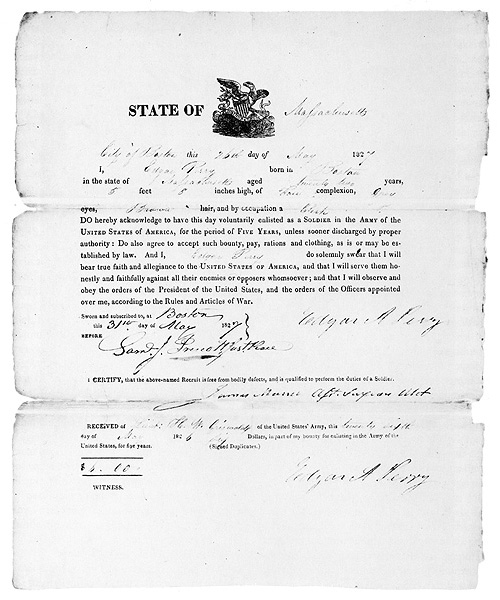 STATE OF Massachusetts
City of Boston this 26th day of May 1827
I, Edgar Perry born in Boston
in the state of Massachusetts aged twenty two years,
5 feet 8 inches high, of fair complexion, Grey
eyes, Brown hair, and by occupation a Clerk
DO hereby acknowledge to have this day voluntarily enlisted as a SOLDIER in the ARMY OF THE
UNITED STATES OF AMERICA, for the period of FIVE YEARS, unless sooner discharged by proper
authority: Do also agree to accept such bounty, pay, rations and clothing, as is or may be es-
tablished by law. And I, Edgar Perry do solemnly swear that I will
bear true faith and allegiance to the UNITED STATES OF AMERICA, and that I will serve them ho-
nestly and faithfully against all their enemies or opposers whomsoever; and that I will observe and
obey the orders of the President of the United States, and the orders of the Officers appointed
over me, according to the Rules and Articles of War.
Sworn and subscribed to, at Boston
this 31st day of May 1827
BEFORE
Edgar A. Perry
I CERTIFY, that the above-named Recruit is free from bodily defects, and is qualified to perform the duties of a Soldier.
RECEIVED of of the United States' Army, this twenty sixth
day of May 182 Dollars, in part of my bounty for enlisting in the Army of the
United States, for five years. (Signed Duplicates.)
$ 00
Edgar A. Perry
WITNESS.